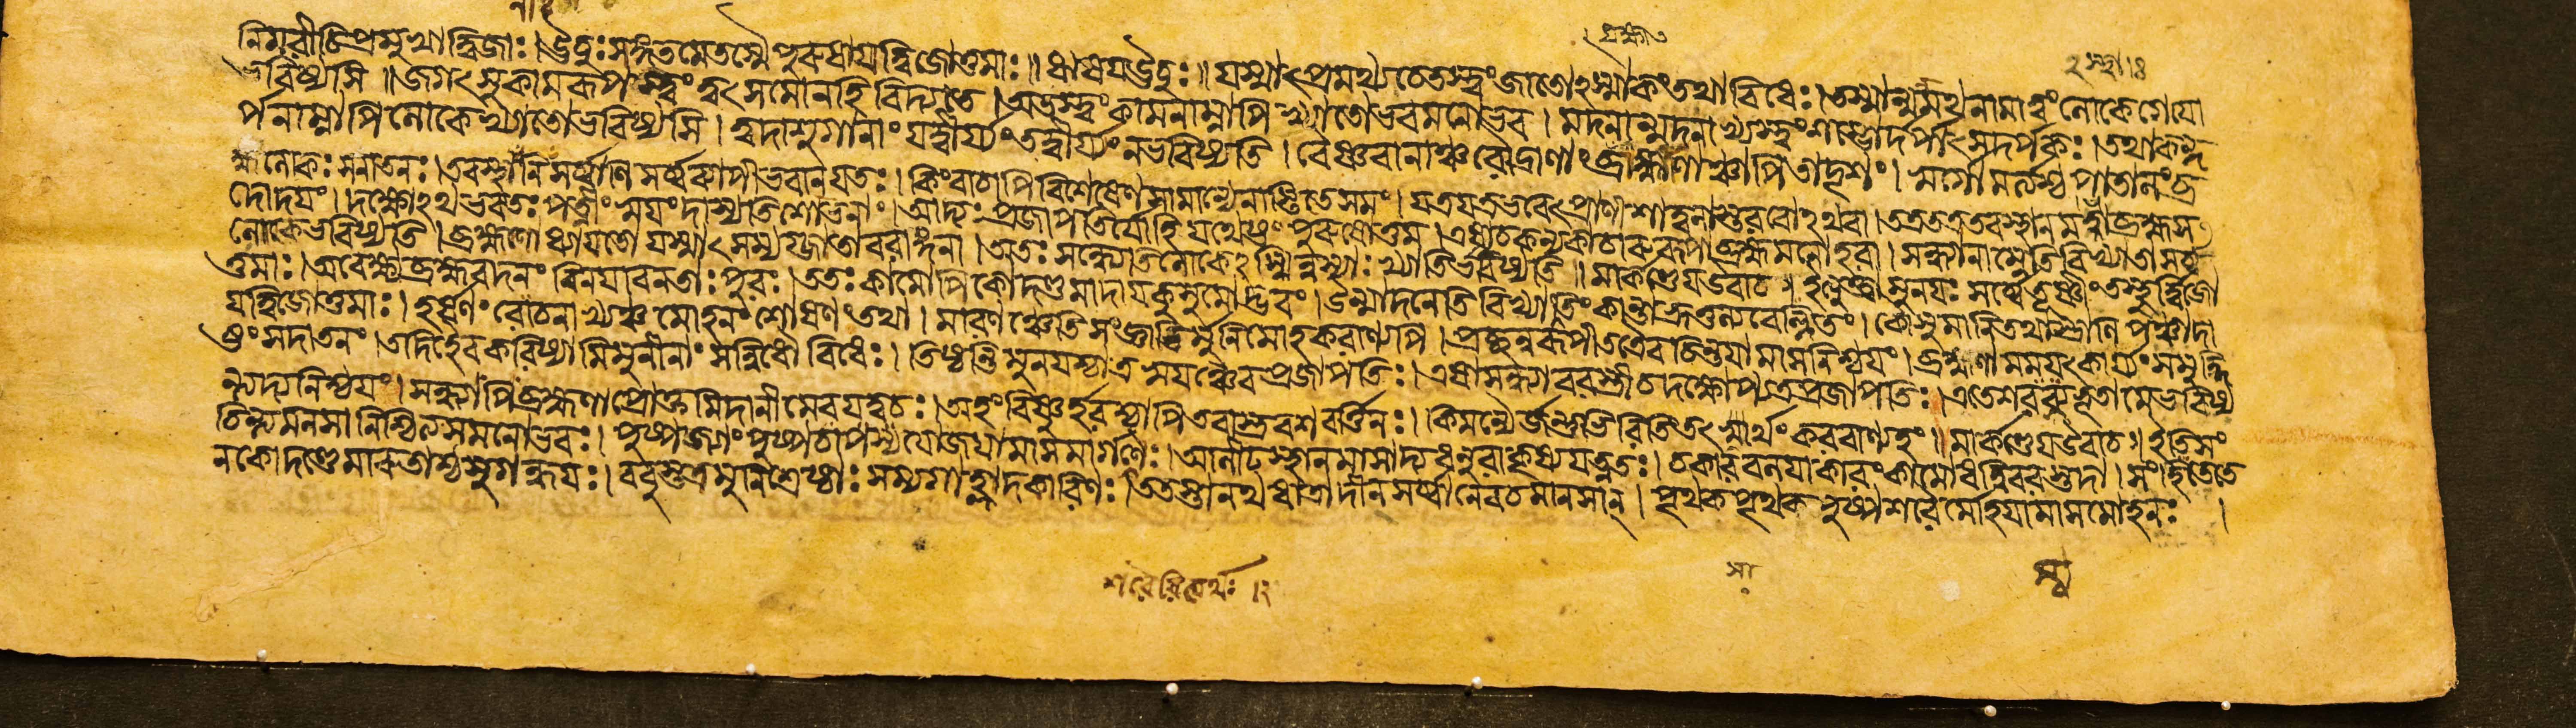 নিমরীচিপ্রমুখাদ্বিজাঃ। ঊচুঃসঙ্গতমেতস্মৈপুরুষায়দ্বিজোত্তমাঃ॥ ঋষয়ঊচুঃ॥ যস্মাৎপ্রমথ্যচেতস্ত্বংজাতোঽস্মাকংতথাবিধেঃ। তস্মান্মন্মথনামাত্বংলোকেগেয়ো
ভবিষ্যসি॥ জগৎসুকামরূপস্ত্বংত্বৎসমোনহিবিদ্যতে। অতস্ত্বংকামনাম্নাপিখ্যাতোভবমনোভব। মদনান্মদনাখ্যস্ত্বংশম্ভোর্দর্পাৎসদর্পকঃ। তথাকন্দ
র্পনাম্নাপিলোকেখ্যাতোভবিষ্যসি। ত্বদাশুগানাংযদ্বীর্য্যংতদ্বীর্য্যংনভবিষ্যতি। বৈষ্ণবানাঞ্চরৌদ্রাণাংব্রাহ্মাণাঞ্চাপিতাদৃশঃ। স্বর্গোমর্ত্যশ্চপাতালংব্র
হ্মলোকঃসনাতনঃ। তবস্থানানিসর্ব্বাণিসর্ব্বব্যাপীভবান্যতঃ। কিংবাচাপিবিশেষেণসামান্যেনাস্তিতেসমঃ। যত্রযত্রভবেৎপ্রাণীশাদ্বলাস্তরবোঽথবা। তত্রতত্রতবস্থানমস্ত্বাব্রহ্মস
দোদয়ং। দক্ষোঽথভবতঃপত্নীংস্বয়ংদাস্যতিশোভনাং। আদ্যঃপ্রজাপতির্যোহিযথেষ্টংপুরুষোত্তম। এষাচকন্যকাচারুরূপাব্রহ্মমনোহরা। সন্ধ্যানাম্নেতিবিখ্যাতাসর্ব্ব
লোকেভবিষ্যতি। ব্রহ্মণোধ্যায়তোযস্মাৎসম্যগ্জাতাবরাঙ্গনা। অতঃসন্ধ্যেতিলোকেঽস্মিন্নস্যাঃখ্যাতির্ভবিষ্যতি॥ মার্কণ্ডেয়উবাচ॥ ইত্যুক্ত্বামুনয়ঃসর্ব্বেতূষ্ণীংতস্থুর্দ্বিজো
ত্তমাঃ। অবেক্ষ্যব্রহ্মবদনং বিনয়াবনতাঃপুরঃ। ততঃকামোপিকোদণ্ডমাদায়কুসুমোদ্ভবং। উন্মাদনেতিবিখ্যাতংকান্তাভ্রূতুল্যবেল্লিতং। কৌসুমানিতথাস্ত্রাণিপঞ্চাদা
য়দ্বিজোত্তমাঃ। হর্ষণংরোচনাখ্যঞ্চমোহনংশোষণংতথা। মারণঞ্চেতিসংজ্ঞাভির্মুনিমোহকরাণ্যপি। প্রচ্ছন্নরূপীতত্রৈবচিন্তয়ামাসনিশ্চয়ং। ব্রহ্মণামময়ৎকার্য্যংসমুদ্দি
ষ্টংসদাতনং। তদিহৈবকরিষ্যামিমুনীনাংসন্নিধৌবিধেঃ। তিষ্ঠন্তিমুনয়শ্চাত্রস্বয়ঞ্চৈবপ্রজাপতিঃ। এষাসন্ধ্যাবরস্ত্রীচদক্ষোপ্যত্রপ্রজাপতিঃ। এতেশরব্যভূতামেভবিষ্য
ন্ত্যদ্যনিশ্চয়ং। সন্ধ্যাপিব্রহ্মণাপ্রোক্তমিদানীমেবযদ্বচঃ। অহংবিষ্ণুর্হরশ্চাপিতবাস্ত্রবশবর্ত্তিনঃ। কিমন্যৈর্জন্তুভিরিতিতৎসার্থংকরবাণ্যহং॥ মার্কণ্ডেয়উবাচ॥ ইতিসং
চিন্ত্যমনসানিশ্চিত্যসমনোভবঃ। পুষ্পজ্যাংপুষ্পচাপস্যযোজয়ামাসমার্গণৈঃ। আলীঢস্থানমাসাদ্যধনুরাকৃষ্যযত্নতঃ। চকারবলয়াকারংকামোধন্বিবরস্তদা। সংহিতেতে
নকোদণ্ডেমারুতাশ্চসুগন্ধয়ঃ। ববুস্তত্রমুনিশ্রেষ্ঠাঃসম্যগাহ্লাদকারিণঃ। ততস্তানথধাত্রাদীন্সর্ব্বানেবচমানসান্। পৃথক্পৃথক্পুষ্পশরৈর্মোহয়ামাসমোহনঃ।
শরৈরিত্যর্থঃ।২